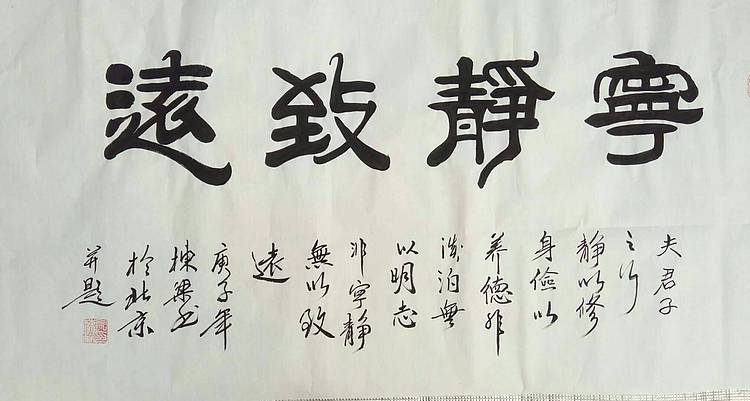 寧靜致遠
夫君子
之行
靜以修
身儉以
养德非
淡泊無
以明志
非寧靜
無以致
遠
庚子年
棟梁书
於北京
并题